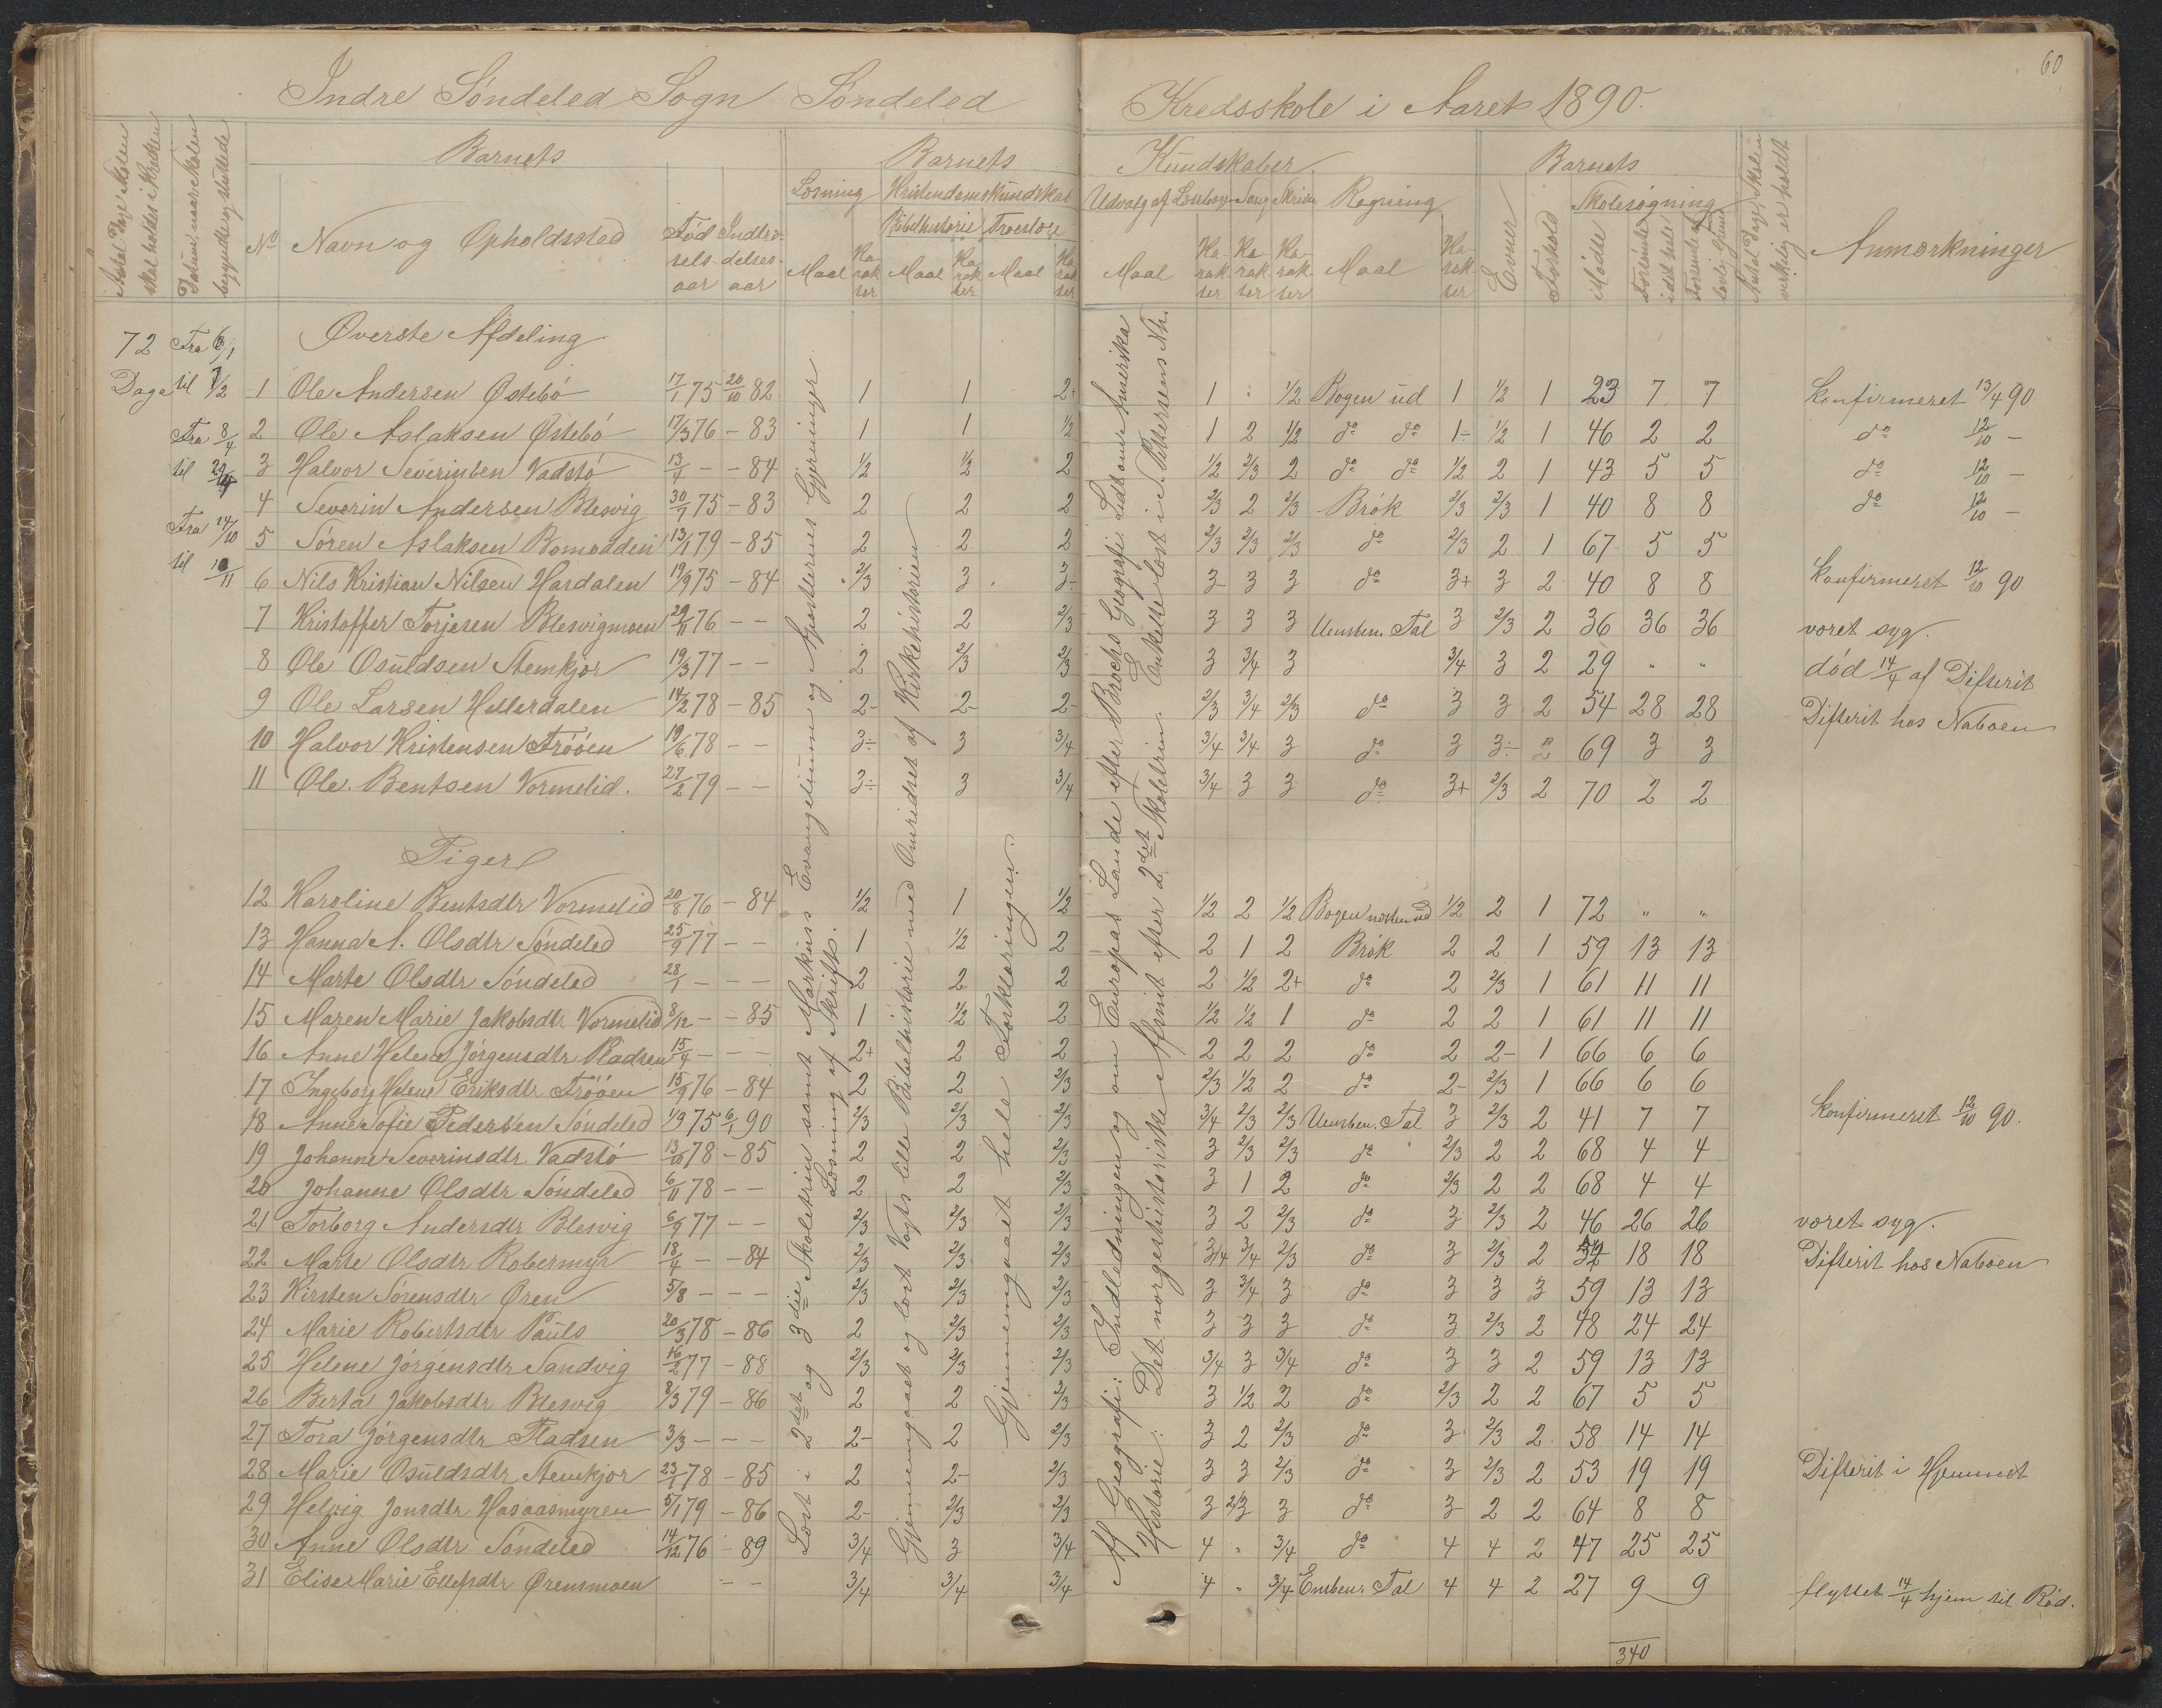 60
Indre Söndeled Sogn Söndeled Kredsskole i Aaret 1890.
Antal Dage Skolen skal holdes i Kredsen
Datum, naar Skolen begyndte og sluttede
Barnets
Barnets Kundskaber
Barnets
Antal Dage Skolen virkelig er holdt
Anmærkninger
No Navn og Opholdssted
Fødselsaar
Indtrædelsesaar
Læsning Kristendomskundskab
Bibelhistorie Troeslære
Maal Karakter Maal Karakter Maal Karakter
Udvalg af Læsebogen Sang Skrivn Regning
Maal Karakter Karakter Karakter Maal Karakter
Evner Forhold
Skolesøgning
Mødte
Forsömte i det hele
Forsömte af lovlig Grund
72 Dage
Fra 6/1 til 7/2
Fra 8/4 til 22/4
Fra 24/10 til /11
Øverste Afdeling
1 Ole Andersen Östebö 17/1 75 20/10 82 1 1 2+ 1 " 1/2 Bogen ud 1 1/2 1 23 7 7 Konfirmeret 13/4 90
2 Ole Aslaksen Östebö 17/3 76 – 83 1 1 1/2 1 2 1/2 do do 1÷ 1/2 1 46 2 2 do 12/10 –
3 Halvor Severinsen Vadstö 13/4 – – 84 1/2 1/2 2 1/2 2/3 2 do do 1/2 2 1 43 5 5 do 12/10 –
4 Severin Andersen Blesvig 30/7 75 – 83 2 2 2 2/3 2 2/3 Brök 2/3 2/3 1 40 8 8 do 12/10 –
5 Sören Aslaksen Bomodden 13/1 79 – 85 2 2 2 2/3 2/3 2/3 do 2/3 2 1 67 5 5
6 Nils Kristian Nilsen Hardalen 19/9 75 – 84 2/3 3 3÷ 3– 3 3 do 3+ 3 2 40 8 8 Konfirmeret 12/10 90
7 Kristoffer Torjesen Blesvigmoen 29/11 76 – – 2 2 2/3 3 3 3 Uensben. Tal 3 2/3 2 36 36 36 været syg.
8 Ole Osuldsen Stemkjær 19/3 77 – – 2 2/3 2/3 3 3/4 3 3/4 3 2 29 " " död 14/4 af Difterit
9 Ole Larsen Hellerdalen 14/2 78 – 85 2– 2– 2– 2/3 3/4 2/3 do 3 3 2 54 28 28 Difterit hos Naboen
10 Halvor Kristensen Tröoen 19/6 78 – – 3÷ 3 3/4 3/4 3/4 3 do 3 3÷ 2 69 3 3
11 Ole Bentsen Vormelid. 27/2 79 – – 3÷ 3 3/4 3/4 3 3 do 3+ 2/3 2 70 2 2
Piger
12 Karoline Bentsdtr Vormelid 20/8 76 – 84 1/2 1 1/2 1/2 2 1/2 Bogen næsten ud 1/2 2 1 72 " "
13 Hanna A. Olsdtr Söndeled 25/9 77 – – 1 1/2 2 2 1 2 Brök 2 2 1 59 13 13
14 Marte Olsdtr Söndeled 28/1 – – – 2 2 2 2 1/2 2+ do 2 2/3 1 61 11 11
15 Maren Marie Jakobsdtr Vormelid 8/12 – – 85 1 1/2 2 1/2 1/2 1 do 2 2 1 61 11 11
16 Anne Helene Jörgensdtr Pladsen 15/4 – – – 2+ 2 2 2 2 2 do 2 2– 1 66 6 6
17 Ingeborg Helene Eriksdtr Tröoen 15/9 76 – 84 2 2 2/3 2/3 1/2 2 do 2– 2/3 1 66 6 6
18 Anne Sofie Pedersen Söndeled 1/9 75 6/1 90 2/3 2/3 2/3 3/4 2/3 2/3 Uensben. Tal 3 2/3 2 41 7 7 Konfirmeret 12/10 90.
19 Johanne Severinsdtr Vadstö 13/10 78 – 85 2 2 2/3 3 2/3 2/3 do 2/3 2 2 68 4 4
20 Johanne Olsdtr Söndeled 6/11 78 – – 2 2 2/3 3 1 2 do 2/3 2 2 68 4 4
21 Torborg Andersdtr Blesvig 6/9 77 – – 2/3 2/3 2/3 3 2 2/3 do 3 2/3 2 46 26 26 været syg.
22 Marte Olsdtr Robermyr 18/4 – – 84 2/3 2/3 2/3 3/4 3/4 2/3 do 3 2/3 2 54 18 18 Difterit hos Naboen
23 Kirsten Sörensdtr Ören 5/8 – – – 2/3 2/3 2/3 3 3/4 3 do 3 3 3 59 13 13
24 Marie Robertsdtr Pauls 20/3 78 – 86 2 2/3 2/3 3 3 3 do 3 2/3 2 48 24 24
25 Helene Jörgensdtr Sandvig 16/2 77 – 88 2/3 2/3 2/3 3/4 3 3/4 do 3 3 2 59 13 13
26 Berta Jakobsdtr Blesvig 8/3 79 – 86 2 2 2/3 3 1/2 2 do 2/3 2 2 67 5 5
27 Tora Jörgensdtr Pladsen 3/3 – – – 2– 2 2/3 3 2 2/3 do 3 2/3 2 58 14 14
28 Marie Osuldsdtr Stemkjær 23/1 78 – 85 2 2– 2/3 3 3 2/3 do 3 2/3 2 53 19 19 Difterit i Hjemmet
29 Helvig Jonsdtr Hasaasmyren 5/1 79 – 86 2– 2/3 2/3 3 2/3 3 do 3– 2 2 64 8 8
30 Anne Olsdtr Söndeled 14/12 76 – 89 3/4 3 3/4 4 " 3/4 do 4 4 2 47 25 25
31 Elise Marie Ellefsdtr Örensmoen – – 3/4 3/4 3/4 4 " 3/4 Ensben. Tal 4 4 2 27 9 9 flyttet 14/4 hjem til Röd.
340
Læst i 2det og 3die Skoletrin samt Markus's Evangelium og Apostlernes Gjerninger.
Læsning af Skrift.
Gjennemgaaet og læst Vogts lille Bibelhistorie med Omridset af Kirkehistorien
Gjennemgaaet hele Forklaringen.
Af Geografi: Indledningen og om Europas Lande efter Brochs Geografi. Lidt om Amerika
Historie: Det norgeshistoriske Afsnit efter 2det Skoletrin. Enkelte læst i S. Petersens Nh.